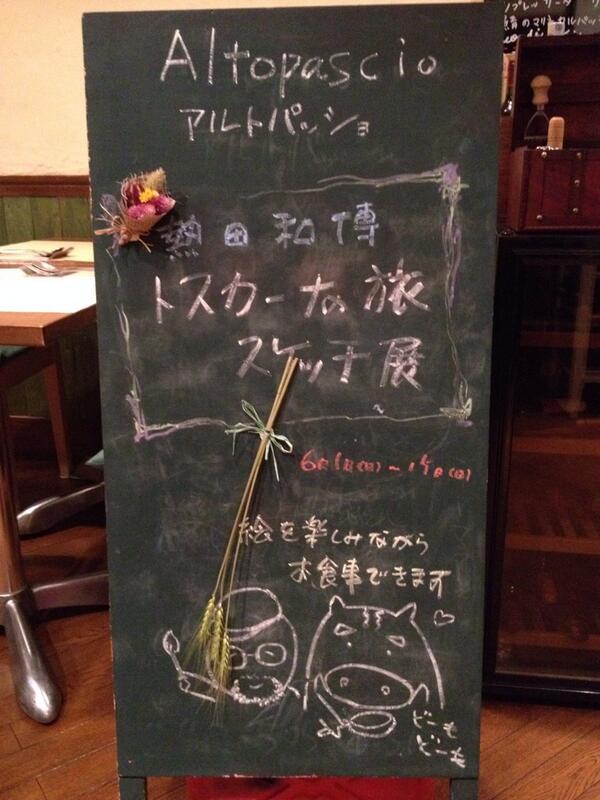 Altopascio
アルトパッショ
熱田和博
トスカーナの旅
スケッチ展
6月1日(日)～15日(日)
絵を楽しみながら
お食事できます
どーも
どーも